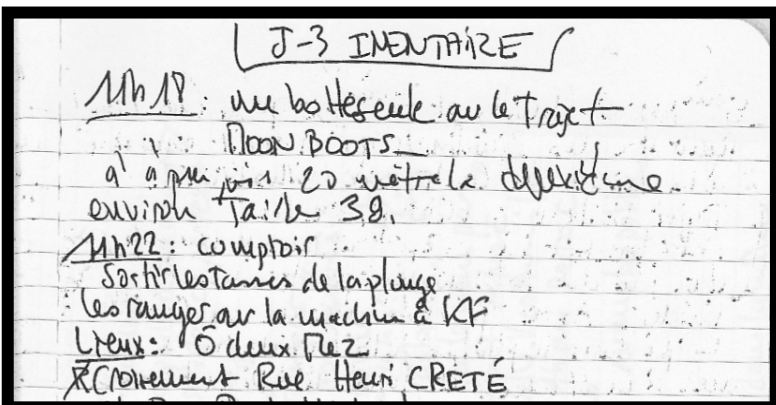 J-3 INENTAIRE
11h18: une botte seule sur le trajet
MOON BOOTS
à à peu près 20 mètre la deuxième
environ Taille 38.
11h22: comptoir
Sortir les tasses de la plonge
les ranger sur la machine à KF
Lieux: Ô deux Mez
Croisement Rue Henri CRETÉ